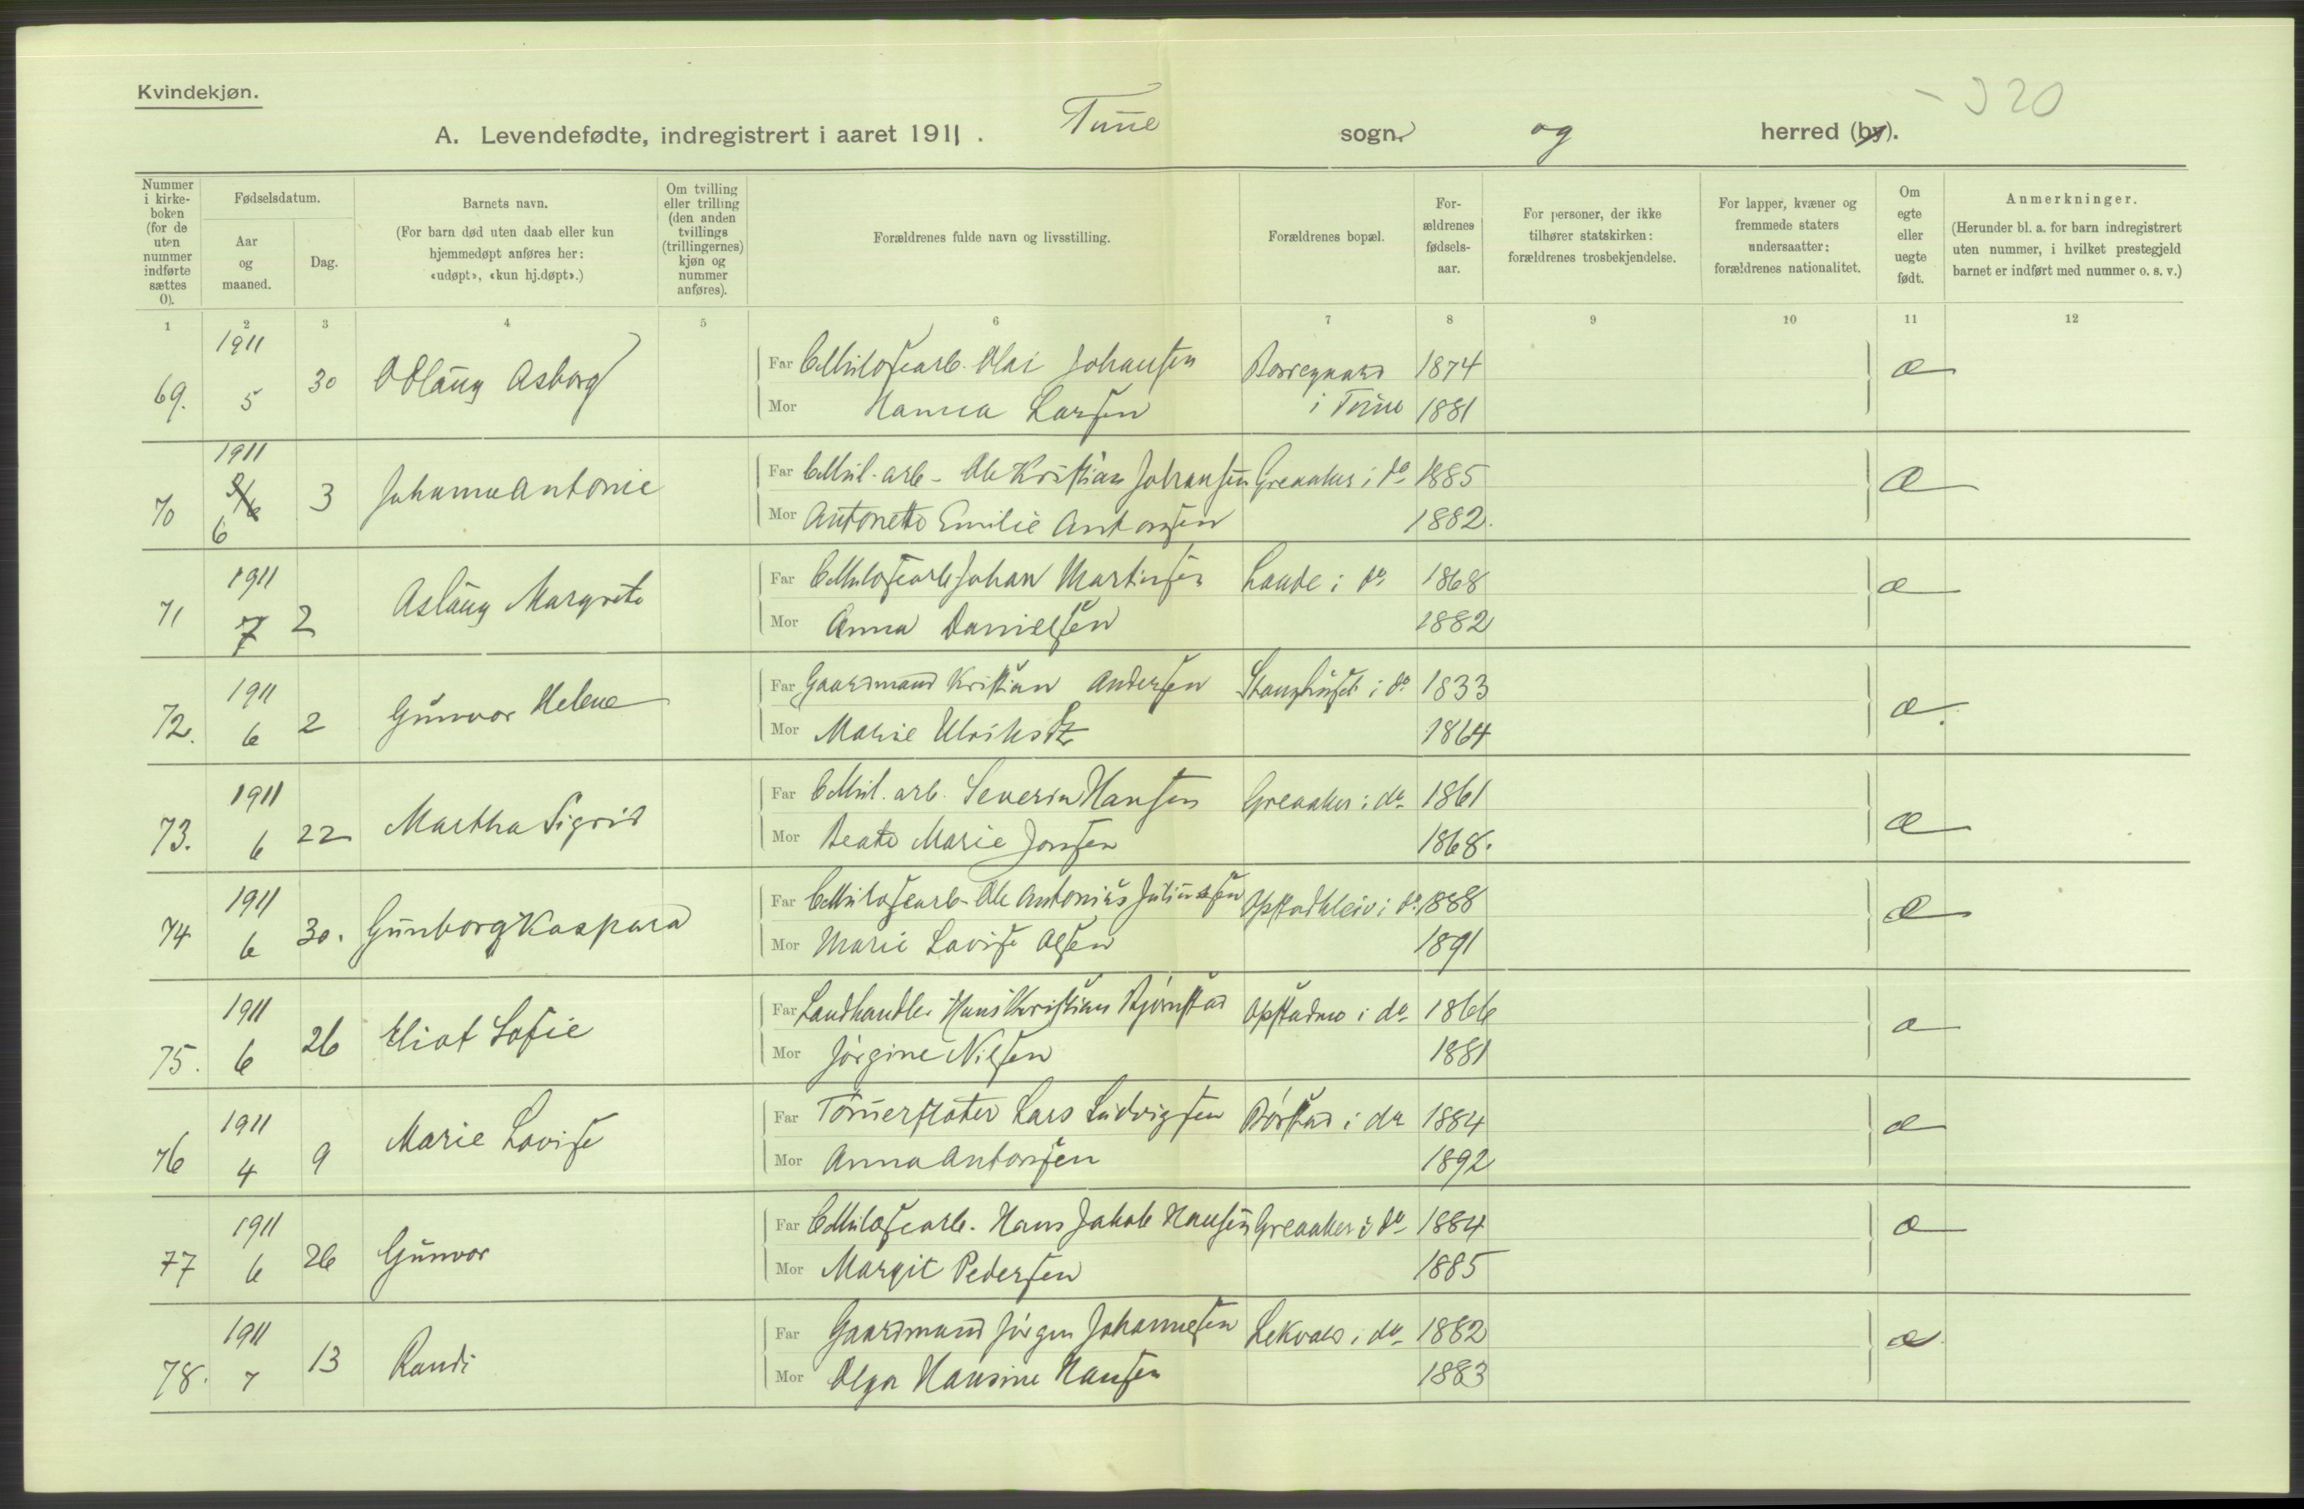 Kvindekjøn.
- 320
A. Levendefødte, indregistrert i aaret 1911. Tune sogn og herred (by).
Nummer i kirke-boken (for de uten nummer indførte sættes 0).
Fødselsdatum.
Aar og maaned.
Dag.
Barnets navn.
(For barn død uten daab eller kun hjemmedøpt anføres her: «udøpt», «kun hj.døpt».)
Om tvilling eller trilling (den anden tvillings (trillingernes) kjøn og nummer anføres).
Forældrenes fulde navn og livsstilling.
Forældrenes bopæl.
For-ældrenes fødsels-aar.
For personer, der ikke tilhører statskirken: forældrenes trosbekjendelse.
For lapper, kvæner og fremmede staters undersaatter: forældrenes nationalitet.
Om egte eller uegte født.
Anmerkninger.
(Herunder bl. a. for barn indregistrert uten nummer, i hvilket prestegjeld barnet er indført med nummer o. s. v.)
1 2 3 4 5 6 7 8 9 10 11 12
69. 1911 5 30 Odlaug Asborg Far Cellulosearb. Olai Johansen Borregaard 1874 æ
Mor Hanna Larsen i Tune 1881
70 1911 3/6 6 3 Johanne Antonie Far Cellul. arb. Ole Kristian Johansen Greaaker i do 1885 Æ
Mor Antonette Emilie Antonsen 1882.
71 1911 7 2 Aslaug Margrete Far Cellulosearb Johan Martinsen Lande i do 1868 æ
Mor Anna Danielsen 1882
72. 1911 6 2 Gunvor Helene Far Gaardmand Kristian Andersen i do 1833 æ.
Mor Marie Ulriksdtr 1864
73. 1911 6 22 Martha Sigrid Far Cellul. arb. Severin Hansen Greaaker i do 1861 Æ
Mor Beate Marie Jonsen 1868.
74 1911 6 30. Gunborg Kaspara Far Cellulosearb. Ole Antonius Juliussen Opstadkleiv i do 1888 Æ
Mor Marie Lovise Olsen 1891
75. 1911 6 26 Eliot Sofie Far Landhandler Hans Kristian Bjørnstad i do 1866 æ
Mor Jørgine Nilsen 1881
76 1911 4 9 Marie Lovise Far Tømerfløter Lars Ludvigsen Børstad i do 1884 æ
Mor Anna Antonsen 1892
77 1911 6 26 Gunvor Far Cellulosearb. Hans Jakob Hansen Greaaker i do 1884 æ
Mor Margit Pedersen 1885
78. 1911 7 13 Randi Far Gaardmand Jørgen Johannesen i do 1882 æ
Mor Olga Hansine Hansen 1883